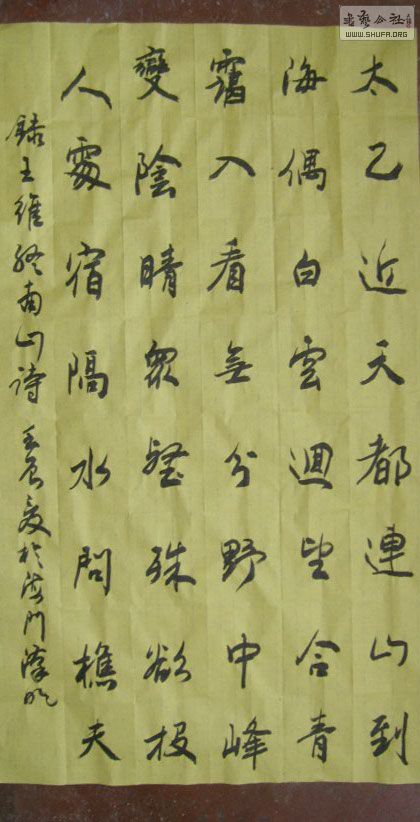 太乙近天都連山到
海偶白雲迴望合青
靄入看無分野中峰
變陰晴眾壑殊欲投
人處宿隔水問樵夫
錄王維終南山詩 夏於海門
書藝公社
WWW.SHUFA.ORG